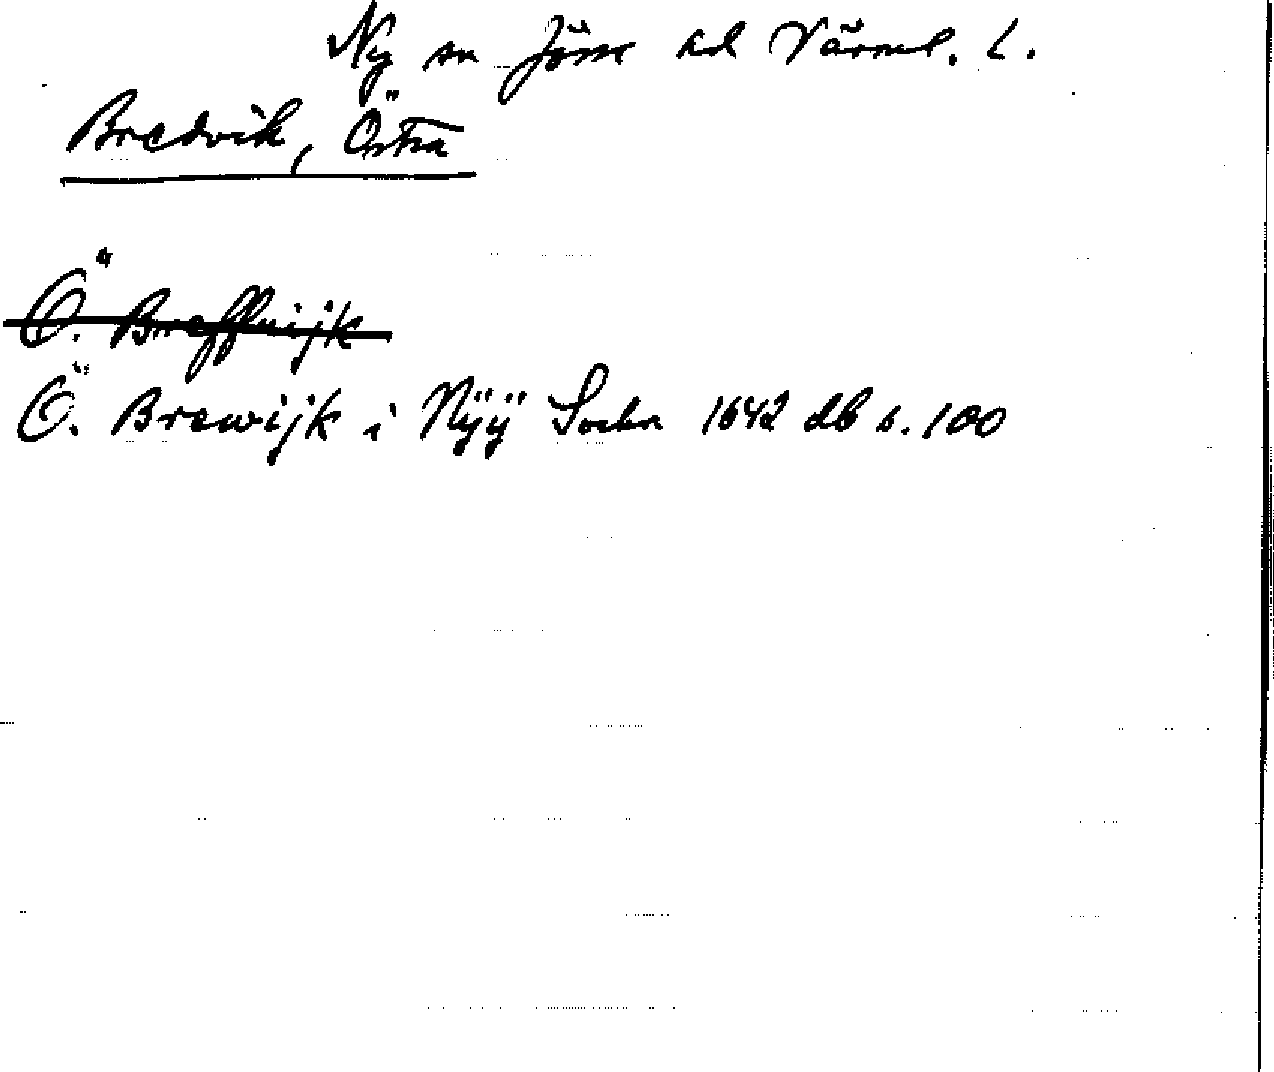 Ny sn Jösse hd Värml. L.
Bredvik, Östra
Ö. Breffwijk
Ö. Brewijk i Nÿÿ Sochn 1642 db s. 100